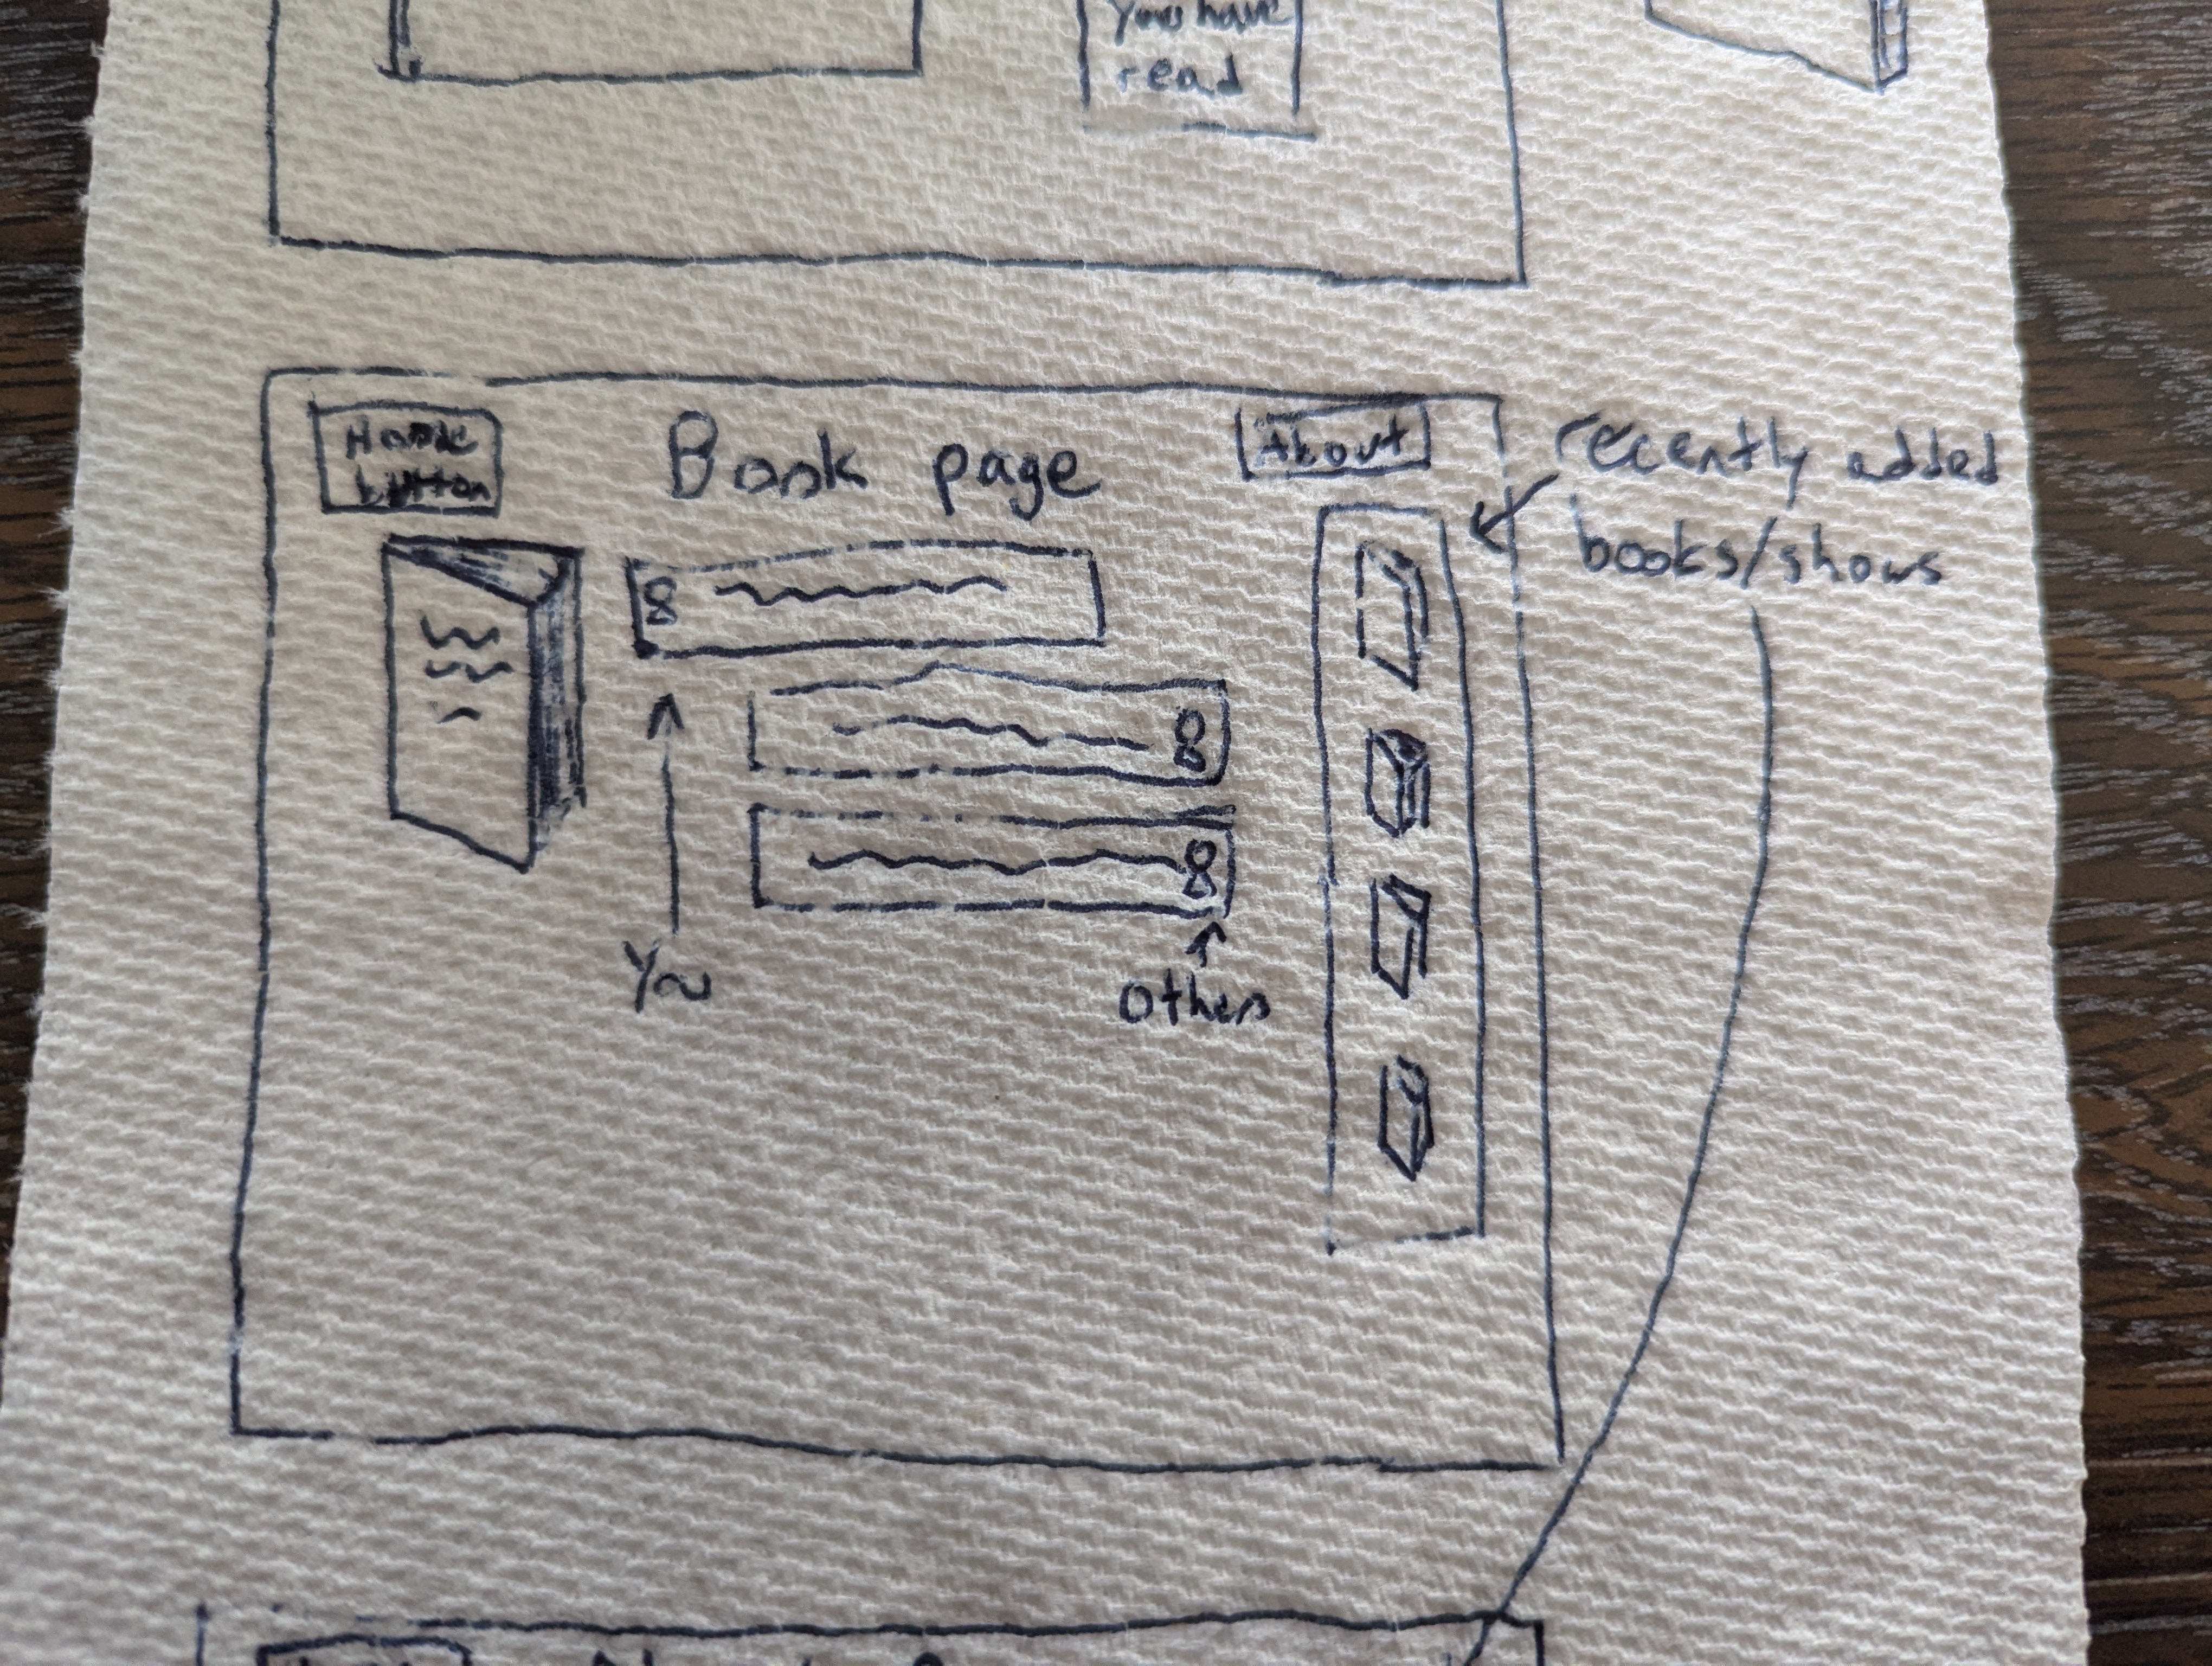 You have
read
Home
button
Book page
About
recently added
books/shows
You
Others